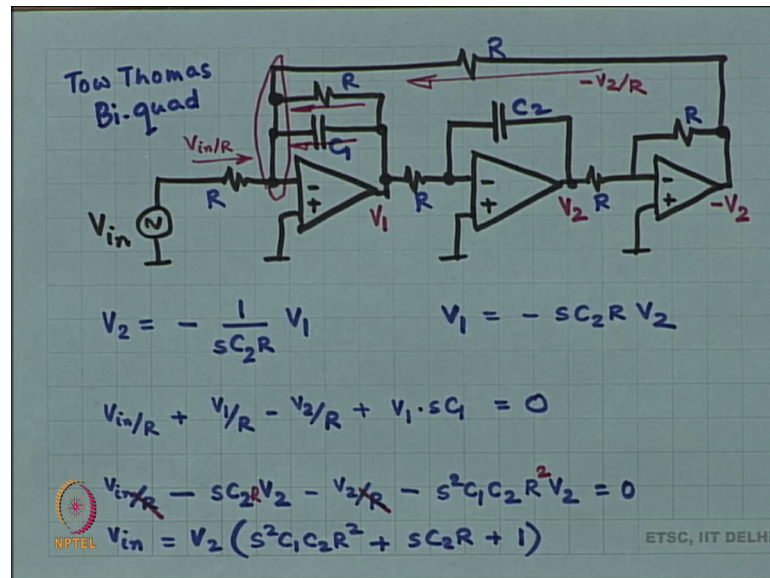 Tow Thomas
Bi-quad
R
-V2/R
R
C1
C2
R
Vin/R
R
R
R
Vin
-
+
-
+
-
+
V1
V2
-V2
V2 = - 1/(sC2R) V1
V1 = - sC2R V2
Vin/R + V1/R - V2/R + V1·sC1 = 0
Vin/R - sC2RV2 - V2/R - s²C1C2R²V2 = 0
Vin = V2 (s²C1C2R² + sC2R + 1)
NPTEL
ETSC, IIT DELHI